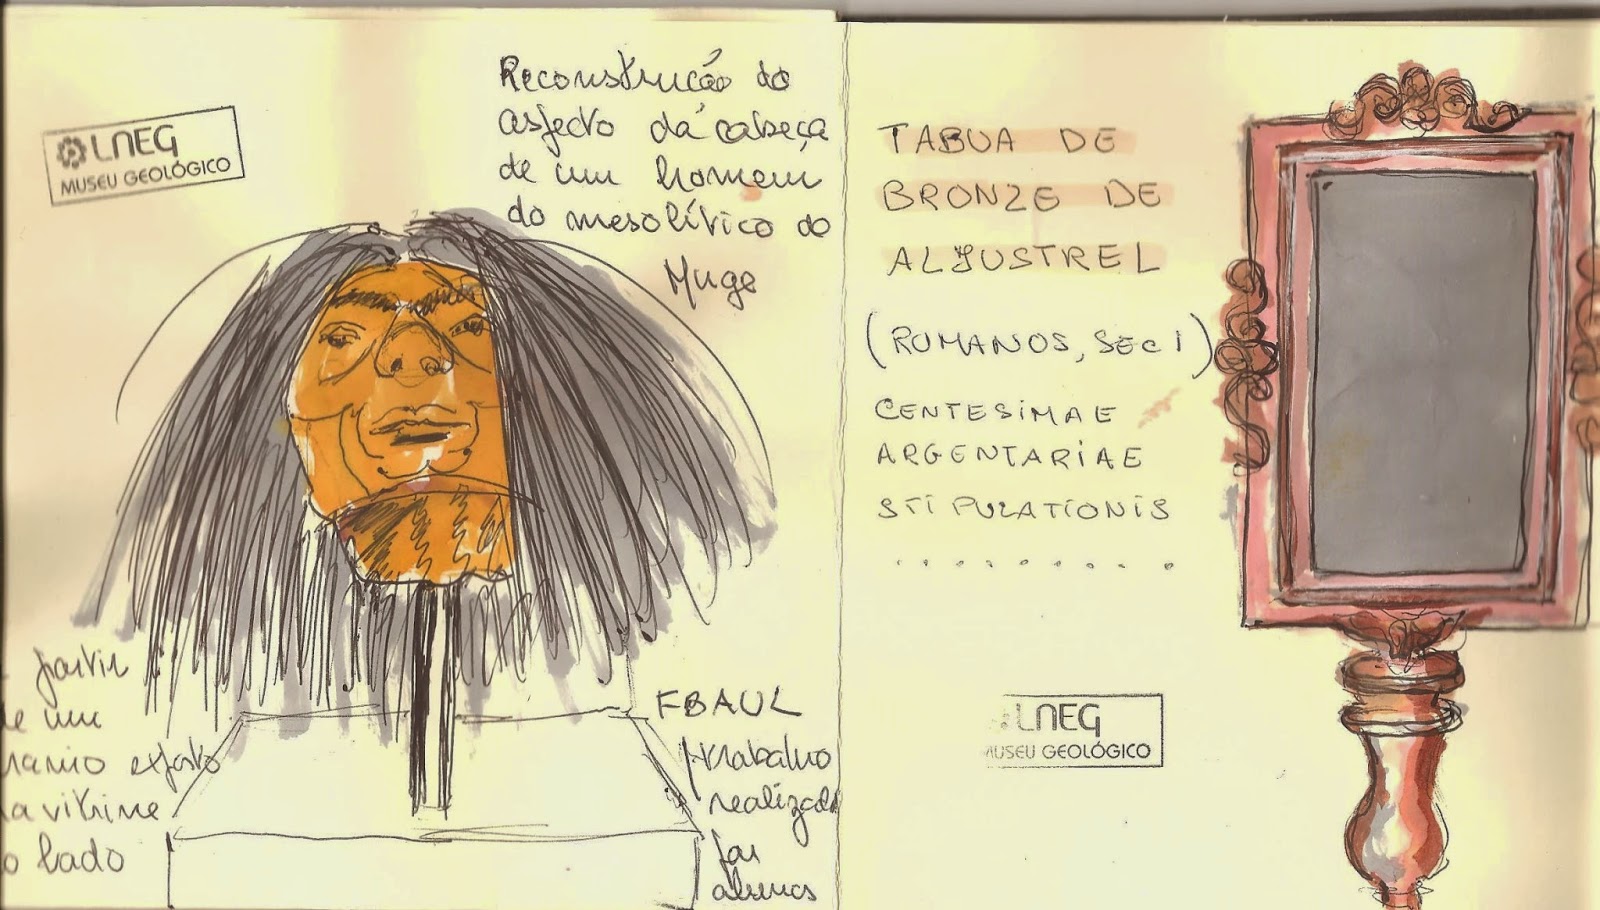 LNEG
MUSEU GEOLÓGICO
Reconstrução do
aspecto da cabeça
de um homem
do mesolítico do
Muge
partir
de um
cranio exposto
na vitrine
ao lado
FBAUL
trabalho
realizado
por
alunos
TABUA DE
BRONZE DE
ALJUSTREL
(ROMANOS, SEC I)
CENTESIMAE
ARGENTARIAE
STIPULATIONIS
..........
LNEG
MUSEU GEOLÓGICO